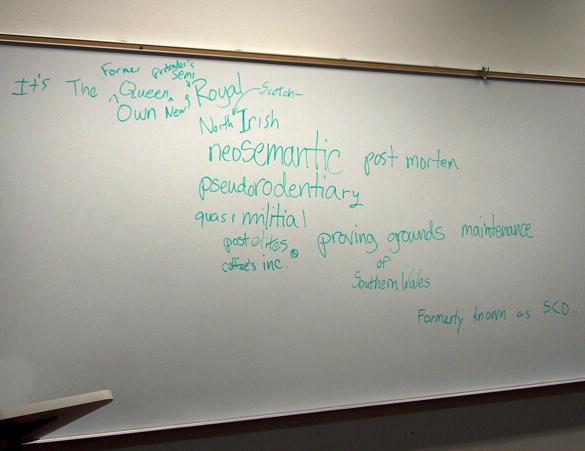 Former pretender's
It's The Queen Semi Royal Scotch-
Own New
North Irish
neosemantic post mortem
pseudorodentiary
quasimilitial
postelites proving grounds maintenance
coffee's inc. of
Southern Wales
Formerly known as SCO...